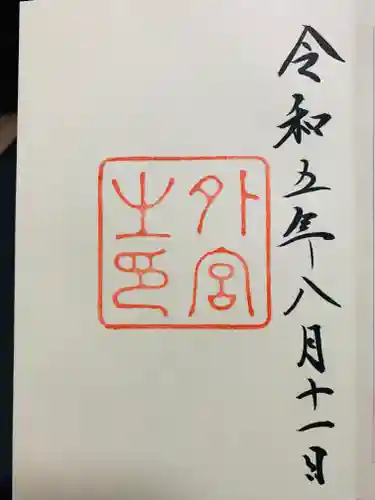 令和五年八月十一日
外宮
之印